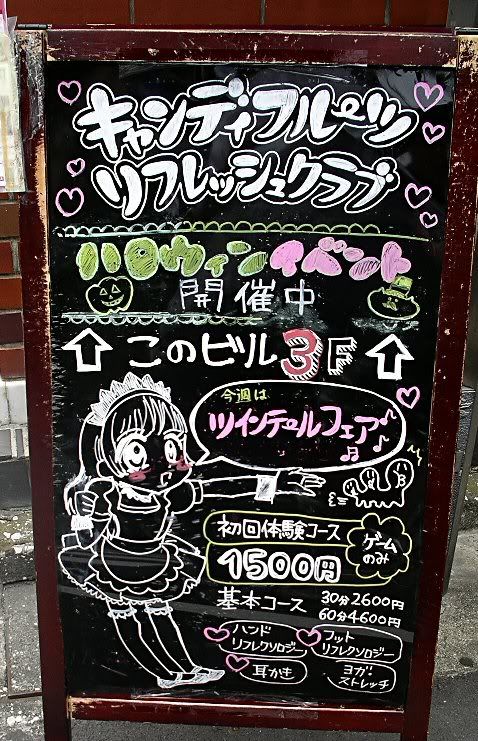 キャンディフルーツ
リフレッシュクラブ
ハロウィンイベント
開催中
このビル3F
今週は
ツインテールフェア
初回体験コース
1500円
ゲーム
のみ
基本コース 30分2600円
60分4600円
ハンド
リフレクソロジー
フット
リフレクソロジー
耳かき
ヨガ・
ストレッチ